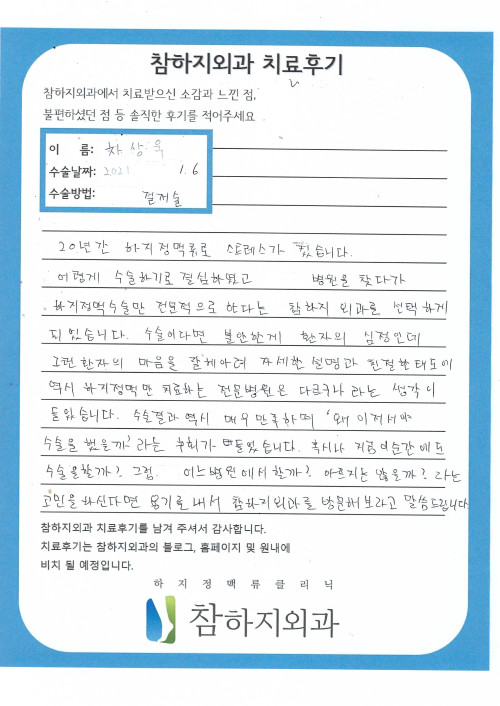 참하지외과 치료후기
참하지외과에서 치료받으신 소감과 느낀 점,
불편하셨던 점 등 솔직한 후기를 적어주세요
이 름: 차상욱
수술날짜: 2021 1.6
수술방법: 절제술
20년간 하지정맥류로 스트레스가 됬습니다.
어렵게 수술하기로 결심하였고 병원을 찾다가
하지정맥수술만 전문적으로 한다는 참하지 외과를 선택하게
되었습니다. 수술이라면 불안한게 환자의 심정인데
그런환자의 마음을 잘헤아려 자세한 설명과 친절한태도에
역시 하지정맥만 치료하는 전문병원은 다르구나 라는 생각이
들었습니다. 수술결과 역시 매우 만족하며 '왜 이제서야
수술을 했을까? 라는 후회가 들었습니다. 혹시나 지금이순간에도
수술을할까? 그럼. 어느병원에서 할까? 아프지는 않을까? 라는
고민을 하신다면 용기로내서 참하지외과를 방문해보라고 말씀드립니다
참하지외과 치료후기를 남겨 주셔서 감사합니다.
치료후기는 참하지외과의 블로그, 홈페이지 및 원내에
비치 될 예정입니다.
하지정맥류클리닉
참하지외과